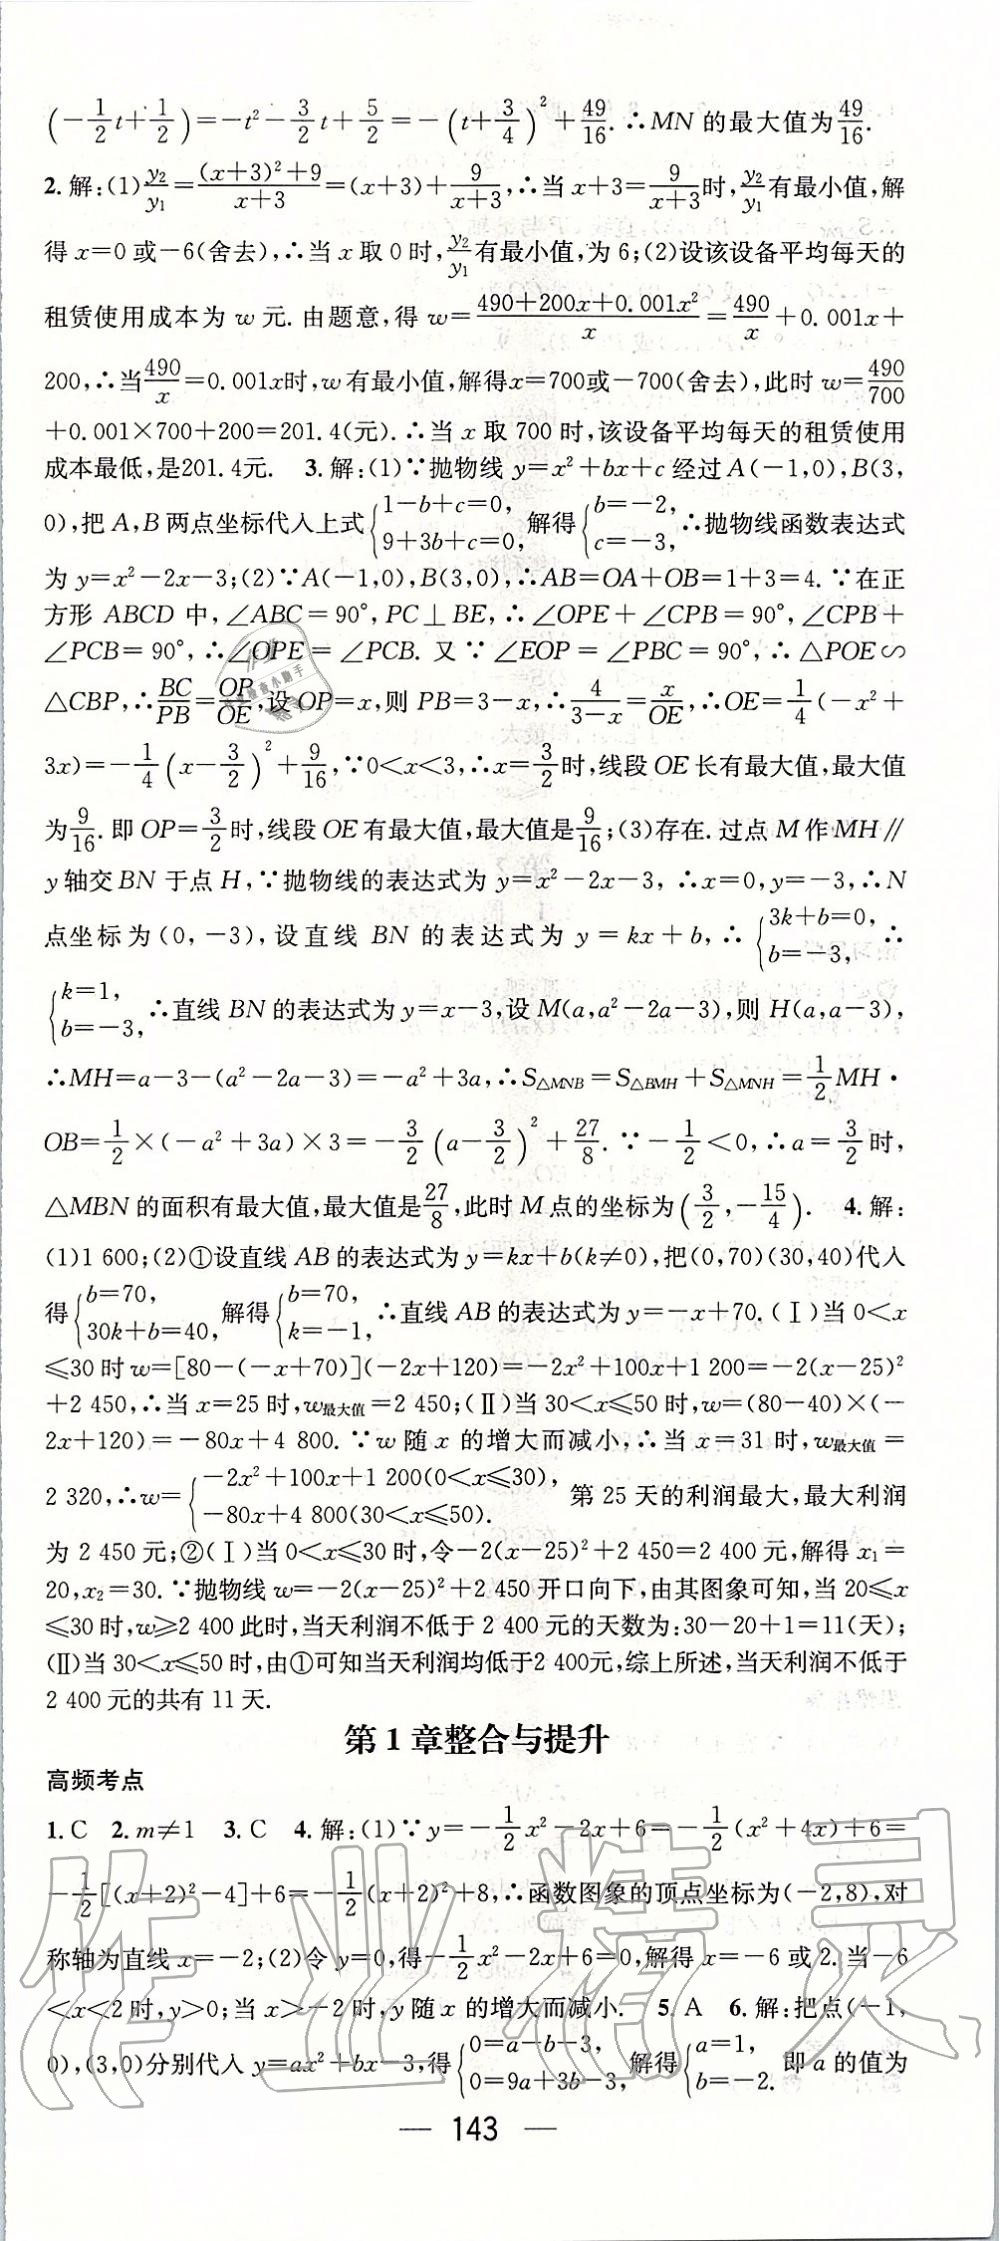 (−1/2t+1/2)=−t²−3/2t+5/2=−(t+3/4)²+49/16.∴MN的最大值为49/16.
2.解:(1)y₂/y₁=((x+3)²+9)/(x+3)=(x+3)+9/(x+3),∴当x+3=9/(x+3)时,y₂/y₁有最小值,解
得x=0或−6(舍去),∴当x取0时,y₂/y₁有最小值,为6;(2)设该设备平均每天的
租赁使用成本为w元.由题意,得w=(490+200x+0.001x²)/x=490/x+0.001x+
200,∴当490/x=0.001x时,w有最小值,解得x=700或−700(舍去),此时w=490/700
+0.001×700+200=201.4(元).∴当x取700时,该设备平均每天的租赁使用
成本最低,是201.4元. 3.解:(1)∵抛物线y=x²+bx+c经过A(−1,0),B(3,
0),把A,B两点坐标代入上式{1−b+c=0, 9+3b+c=0,解得{b=−2, c=−3,∴抛物线函数表达式
为y=x²−2x−3;(2)∵A(−1,0),B(3,0),∴AB=OA+OB=1+3=4.∵在正
方形ABCD中,∠ABC=90°,PC⊥BE,∴∠OPE+∠CPB=90°,∠CPB+
∠PCB=90°,∴∠OPE=∠PCB.又∵∠EOP=∠PBC=90°,∴△POE∽
△CBP,∴BC/PB=OP/OE,设OP=x,则PB=3−x,∴4/(3−x)=x/OE,∴OE=1/4(−x²+
3x)=−1/4(x−3/2)²+9/16,∵0<x<3,∴x=3/2时,线段OE长有最大值,最大值
为9/16.即OP=3/2时,线段OE有最大值,最大值是9/16;(3)存在.过点M作MH∥
y轴交BN于点H,∵抛物线的表达式为y=x²−2x−3,∴x=0,y=−3,∴N
点坐标为(0,−3),设直线BN的表达式为y=kx+b,∴{3k+b=0, b=−3,∴
{k=1, b=−3,∴直线BN的表达式为y=x−3,设M(a,a²−2a−3),则H(a,a−3),
∴MH=a−3−(a²−2a−3)=−a²+3a,∴S△MNB=S△BMH+S△MNH=1/2MH·
OB=1/2×(−a²+3a)×3=−3/2(a−3/2)²+27/8.∵−1/2<0,∴a=3/2时,
△MBN的面积有最大值,最大值是27/8,此时M点的坐标为(3/2,−15/4). 4.解:
(1)1 600;(2)①设直线AB的表达式为y=kx+b(k≠0),把(0,70)(30,40)代入
得{b=70, 30k+b=40,解得{b=70, k=−1,∴直线AB的表达式为y=−x+70.(Ⅰ)当0<x
≤30时w=[80−(−x+70)](−2x+120)=−2x²+100x+1 200=−2(x−25)²
+2 450,∴当x=25时,w最大值=2 450;(Ⅱ)当30<x≤50时,w=(80−40)×(−
2x+120)=−80x+4 800.∵w随x的增大而减小,∴当x=31时,w最大值=
2 320,∴w={−2x²+100x+1 200(0<x≤30), −80x+4 800(30<x≤50). 第25天的利润最大,最大利润
为2 450元;②(Ⅰ)当0<x≤30时,令−2(x−25)²+2 450=2 400元,解得x₁=
20,x₂=30.∵抛物线w=−2(x−25)²+2 450开口向下,由其图象可知,当20≤x
≤30时,w≥2 400此时,当天利润不低于2 400元的天数为:30−20+1=11(天);
(Ⅱ)当30<x≤50时,由①可知当天利润均低于2 400元,综上所述,当天利润不低于
2 400元的共有11天.
第1章整合与提升
高频考点
1.C 2.m≠1 3.C 4.解:(1)∵y=−1/2x²−2x+6=−1/2(x²+4x)+6=
−1/2[(x+2)²−4]+6=−1/2(x+2)²+8,∴函数图象的顶点坐标为(−2,8),对
称轴为直线x=−2;(2)令y=0,得−1/2x²−2x+6=0,解得x=−6或2.当−6
<x<2时,y>0;当x>−2时,y随x的增大而减小. 5.A 6.解:把点(−1,
0),(3,0)分别代入y=ax²+bx−3,得{0=a−b−3, 0=9a+3b−3,解得{a=1, b=−2.即a的值为
— 143 —
作业精灵